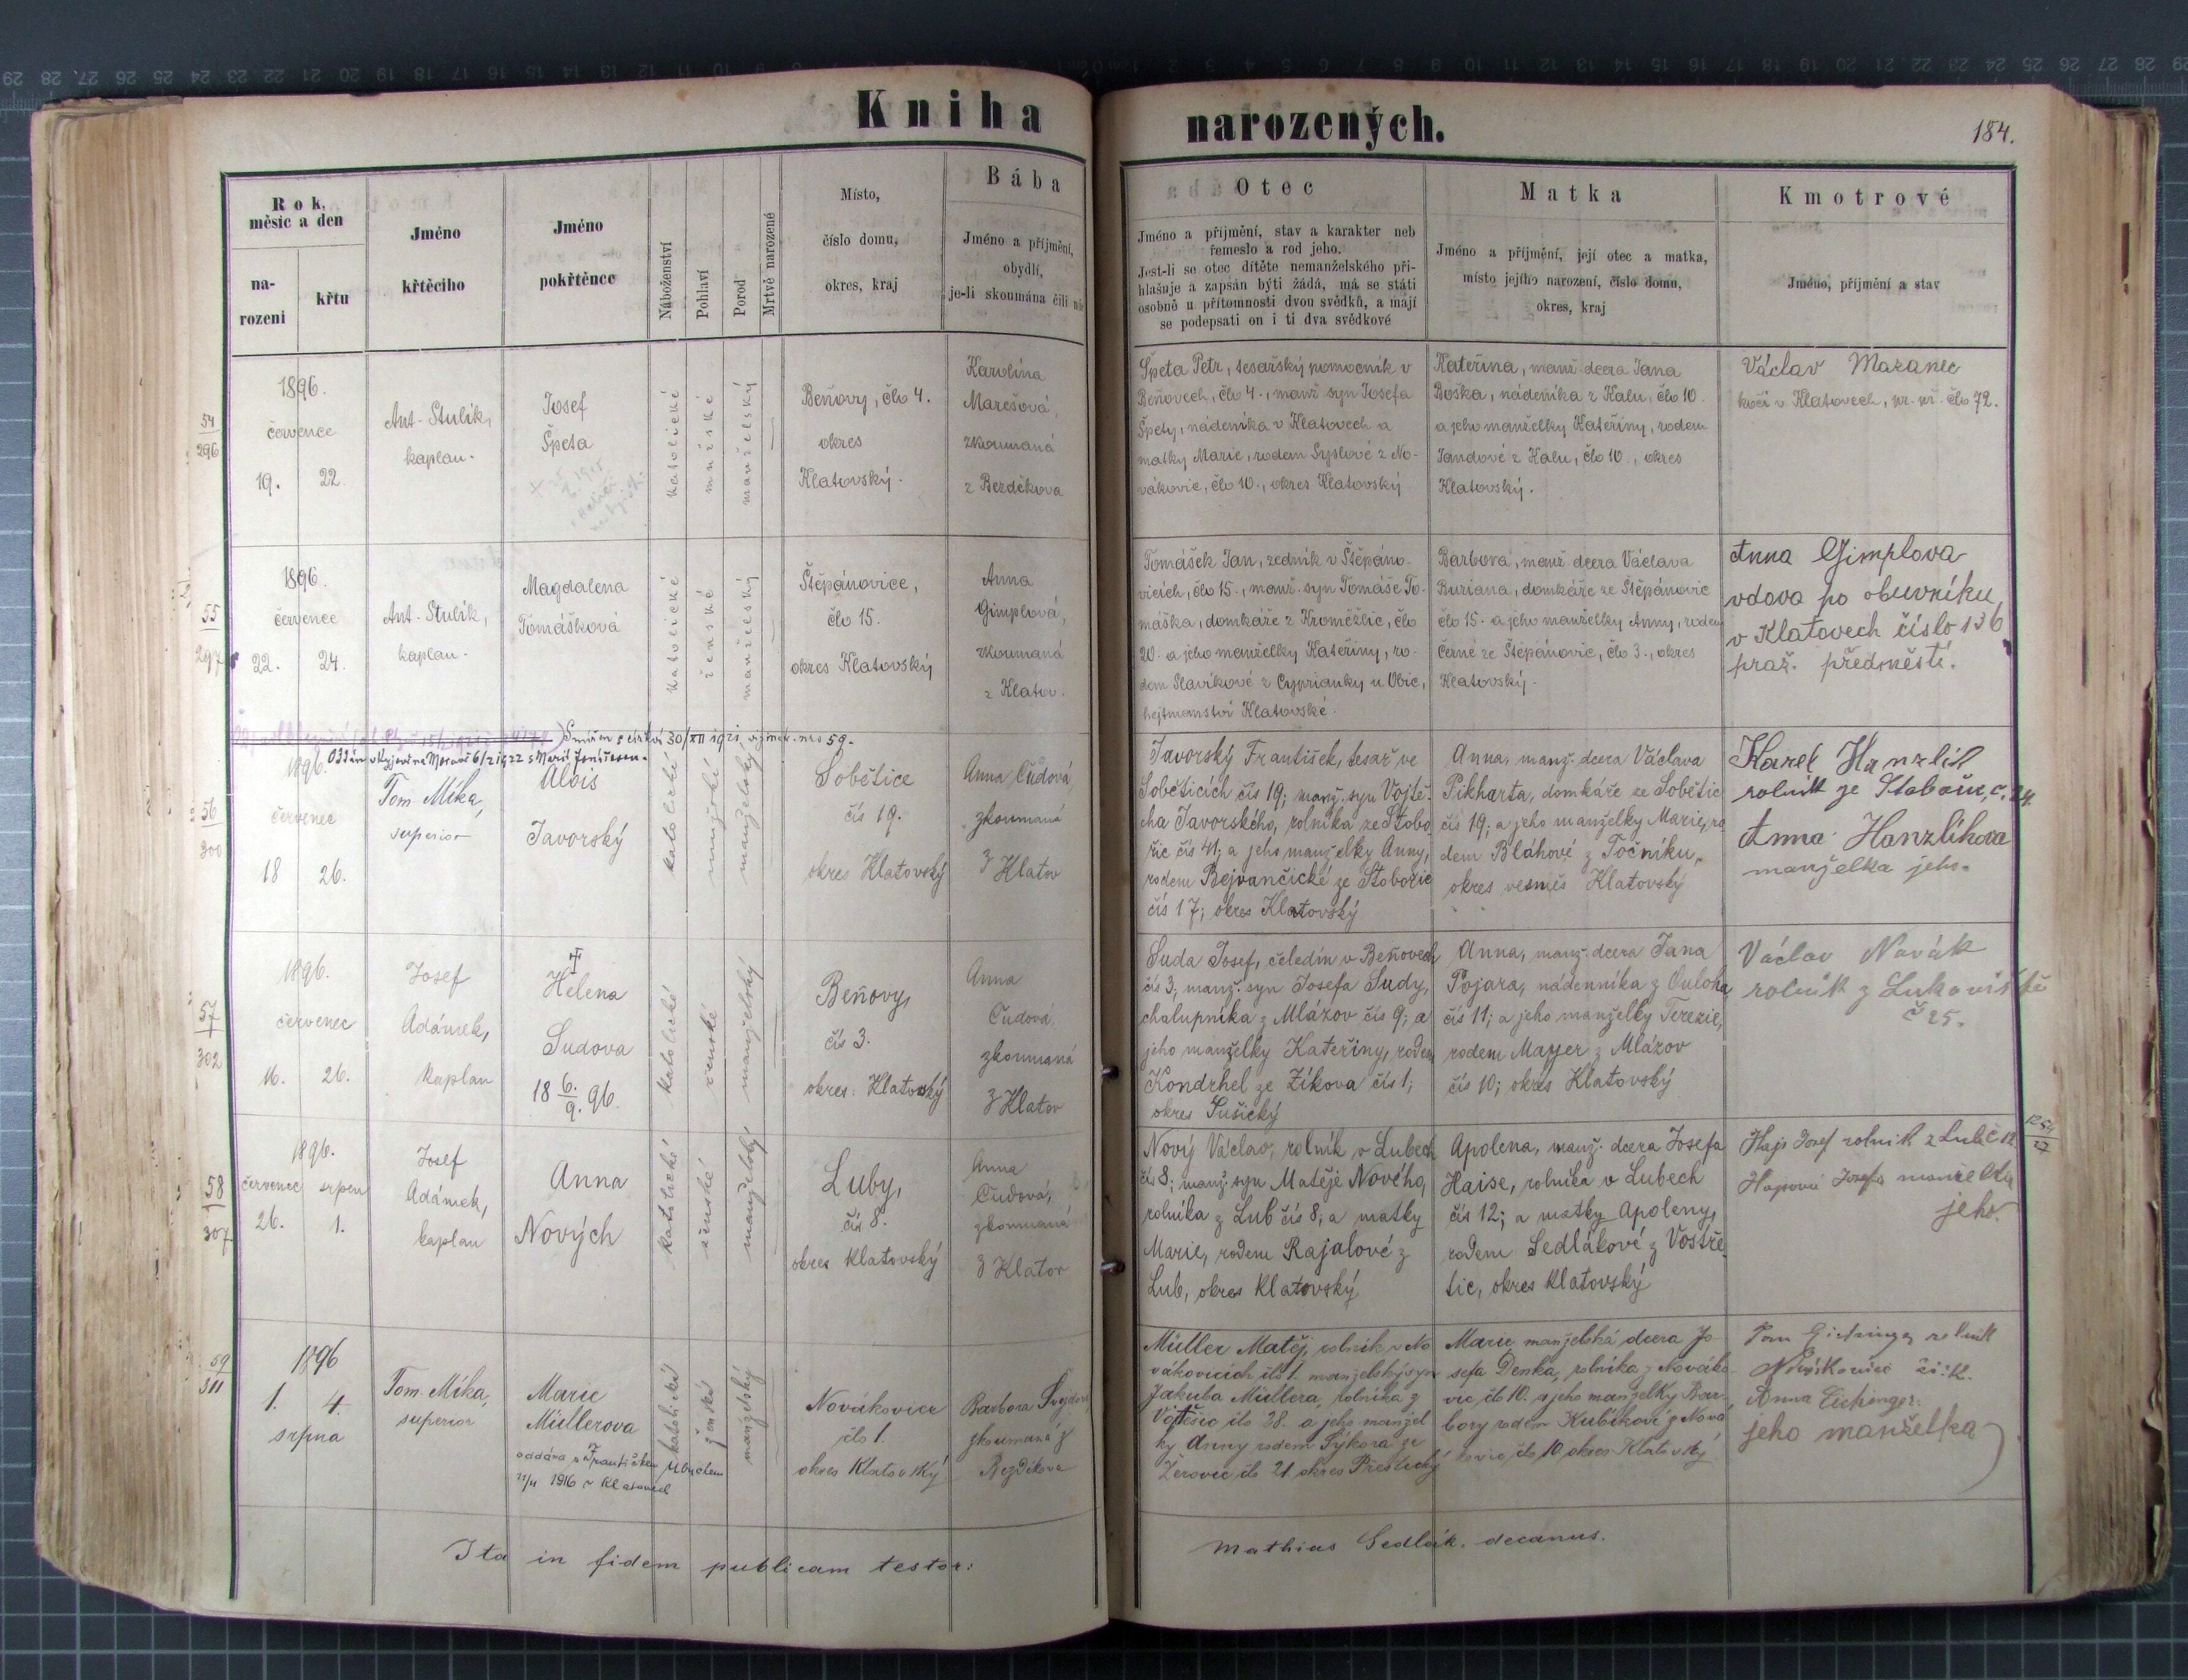 Kniha narozených.
184.
Rok, měsíc a den
na-
rozeni
křtu
Jméno
křtěcího
Jméno
pokřtěnce
Náboženství
Pohlaví
Porod
Mrtvě narozené
Místo,
číslo domu,
okres, kraj
Bába
Jméno a příjmění,
obydlí,
je-li skoumána čili
Otec
Jméno a příjmění, stav a karakter neb
řemeslo a rod jeho.
Jest-li se otec dítěte nemanželského při-
hlašuje a zapsán býti žádá, má se státi
osobně u přítomnosti dvou svědků, a mají
se podepsati on i ti dva svědkové
Matka
Jméno a příjmění, její otec a matka,
místo jejího narození, číslo domu,
okres, kraj
Kmotrové
Jméno, příjmění a stav
54
296
1896.
července
19. 22.
Ant. Stulík,
kaplan.
Josef
Špeta
katolické
mužské
manželský
Beňovy, člo 4.
okres
Klatovský.
Karolína
Marešová,
zkoumaná
z Bezděkova
Špeta Petr, tesařský pomocník v
Beňovech, člo 4., manž syn Josefa
Špety, nádeníka v Klatovech a
matky Marie, rodem Syslové z No-
vákovic, člo 10., okres Klatovský
Kateřina, manž dcera Jana
Boška, nádeníka z Kalu, člo 10.
a jeho manželky Kateřiny, rodem
Jandové z Kalu, člo 10., okres
Klatovský.
Václav Mazanec
kočí v Klatovech, člo 72.
55
297
1896.
července
22. 24.
Ant. Stulík,
kaplan.
Magdalena
Tomášková
katolické
ženské
manželský
Štěpánovice,
člo 15.
okres Klatovský
Anna
Gimplová,
zkoumaná
z Klatov.
Tomášek Jan, zedník v Štěpáno-
vicích, člo 15., manž. syn Tomáše To-
máška, domkáře z Kroměžlic, člo
20. a jeho manželky Kateřiny, ro-
dem Slavíkové z Cyprianky u Obic,
hejtmanství Klatovské.
Barbora, manž dcera Václava
Buriana, domkáře ze Štěpánovic
člo 15. a jeho manželky Anny, rodem
Černé ze Štěpánovic, člo 3., okres
Klatovský.
Anna Gimplova
vdova po obuvníku
v Klatovech číslo 136
praž. předměstí.
30/XII 1921
6/2 1922 s Marií
56
300
1896.
červenec
18 26.
Tom. Míka,
superior
Alois
Javorský
katolické
mužské
manželský
Sobětice
čís 19.
okres Klatovský
Anna Čudová,
zkoumaná
z Klatov
Javorský František, tesař ve
Soběticích čís 19; manž. syn Vojtě-
cha Javorského, rolníka ze Stobo
řic čís 41; a jeho manželky Anny,
rodem Bejvančické ze Stobořic
čís 17; okres Klatovský
Anna, manž. dcera Václava
Pikharta, domkáře ze Sobětic
čís 19; a jeho manželky Marie, ro
dem Bláhové z Točníku,
okres vesměs Klatovský
Karel Hanzlík
rolník ze Stobořic, č. 24.
Anna Hanzlíkova
manželka jeho.
57
302
1896.
červenec
16. 26.
Josef
Adámek,
kaplan
Helena
Sudova
18 6./9. 96.
katolické
ženské
manželský
Beňovy,
čís 3.
okres Klatovský
Anna
Čudová,
zkoumaná
z Klatov
Suda Josef, čeledín v Beňovech
čís 3; manž. syn Josefa Sudy,
chalupníka z Mlázov čís 9; a
jeho manželky Kateřiny, rodem
Kondrhel ze Zíkova čís 1;
okres Sušický
Anna, manž. dcera Jana
Pojara, nádenníka z Ouloha
čís 11; a jeho manželky Terezie,
rodem Mayer z Mlázov
čís 10; okres Klatovský
Václav Novák
rolník z Lukoviště
č 25.
58
307
1896.
červenec srpen
26. 1.
Josef
Adámek,
kaplan
Anna
Nových
katolické
ženské
manželský
Luby,
čís 8.
okres Klatovský
Anna
Čudová,
zkoumaná
z Klatov
Nový Václav, rolník v Lubech
čís 8; manž. syn Matěje Nového,
rolníka z Lub čís 8; a matky
Marie, rodem Rajalové z
Lub, okres Klatovský
Apolena, manž. dcera Josefa
Haise, rolníka v Lubech
čís 12; a matky Apoleny,
rodem Sedlákové z Vostře-
tic, okres Klatovský
Hajs Josef rolnik z Lub č 12
Hajsová Josefa manželka
jeho.
59
311
1896
1. 4.
srpna
Tom. Míka,
superior
Marie
Müllerova
oddána s Františkem Ulrychem
1916 v Klatovech
katolické
ženské
manželský
Novákovice
čslo 1.
okres Klatovský
Barbora
zkoumaná z
Bezděkova
Müller Matěj, rolník v No
vákovicích čslo 1. manželský syn
Jakuba Müllera, rolníka z
čslo 28. a jeho manžel
ky Anny rodem Sýkora ze
Žerovic čslo 21 okres Přeštický
Marie manželská dcera Jo
sefa Denka, rolníka z Nováko
vic čslo 10. a jeho manželky Bar-
bory rodem Kubíkové z Nová
kovic, čslo 10 okres Klatovský
Eichinger rolník
Novákovic
Anna Eichinger.
jeho manželka
Ita in fidem publicam testor:
Mathias Sedlák. decanus.